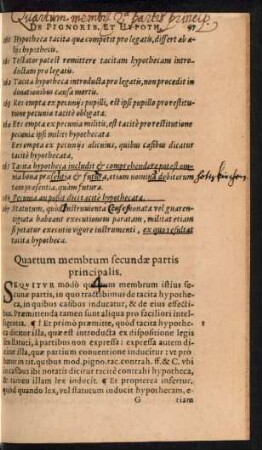 Quartum membrū 2ᵉ partis princip.
DE PIGNORIB. ET HYPOTH. 97
160 Hypotheca tacita quæ competit pro legatis, differt ab a-
lijs hypothecis.
161 Testator potest remittere tacitam hypothecam intro-
ductam pro legatis.
162 Tacita hypotheca introducta pro legatis, non procedit in
donationibus causa mortis.
163 Res empta ex pecunijs pupilli, est ipsi pupillo pro restitu-
tione pecuniæ tacitè obligata.
164 Res empta ex pecunia militis, est tacitè pro restitutione
pecuniæ ipsi militi hypothecata.
165 Res empta ex pecunijs alicuius, quibus casibus dicatur
tacitè hypothecata.
Tacita hypotheca includit & comprehendere potest om-
nia bona præsentia & futura, etiam nomina debitorum
tam præsentia, quàm futura.
Pecunia an possit dici tacitè hypothecata.
Statutum, quòd instrumenta confessionata vel guaren-
tigiata habeant executionem paratam, militat etiam
si petatur executio vigore instrumenti, ex quo resultat
tacita hypotheca.
Quartum membrum secundæ partis
principalis.
4
SEQVITVR modò quartum membrum istius se-
cundæ partis, in quo tractabimus de tacita hypothe-
ca, in quibus casibus inducatur, & de eius effecti-
bus. Præmittenda tamen sunt aliqua pro faciliori intel-
ligentia. ¶ Et primò præmitte, quòd tacita hypothe- 1
ca dicitur illa, quæ est introducta ex dispositione legis
seu statuti, à partibus non expressa: expressa autem di-
citur illa, quæ partium conuentione inducitur: vt pro-
batur in tit. in quib. cau. mod. pig. ra. contrah. ff. & C. vbi
in casibus ibi notatis dicitur tacitè contrahi hypotheca,
& tamen illam lex inducit. ¶ Et propterea infertur,
quòd quando lex, vel statutum inducit hypothecam, in
G etiam